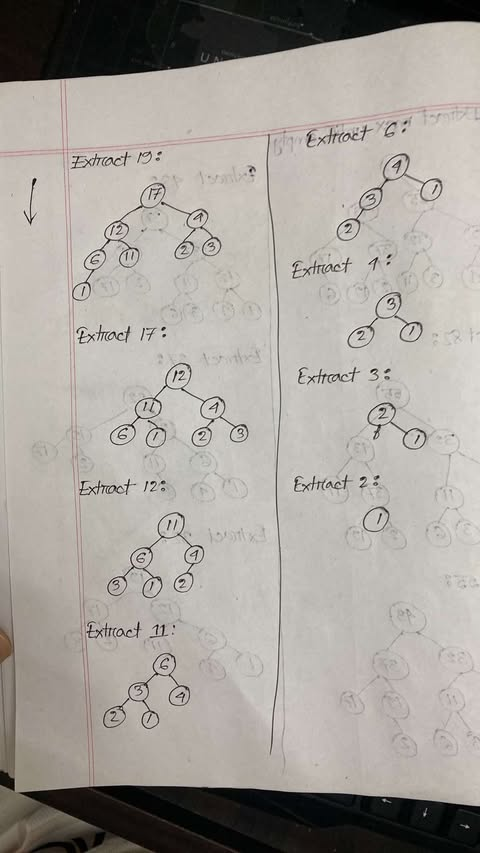 Extract 19:
17
12 4
6 11 2 3
1
Extract 17:
12
11 4
6 1 2 3
Extract 12:
11
6 4
3 1 2
Extract 11:
6
3 4
2 1
Extract 6:
4
3 1
2
Extract 4:
3
2 1
Extract 3:
2
1
Extract 2:
1